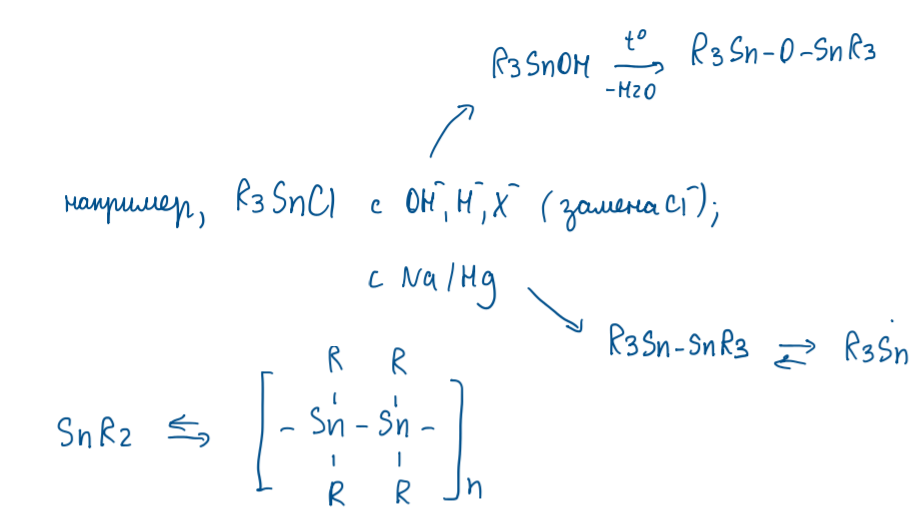 R3SnOH t° → -H2O R3Sn-O-SnR3
например, R3SnCl с OH⁻, H⁻, X⁻ (замена Cl⁻);
с Na/Hg
R3Sn-SnR3 ⇌ R3Sn·
R R
SnR2 ⇆ [-Sn-Sn-]n
R R